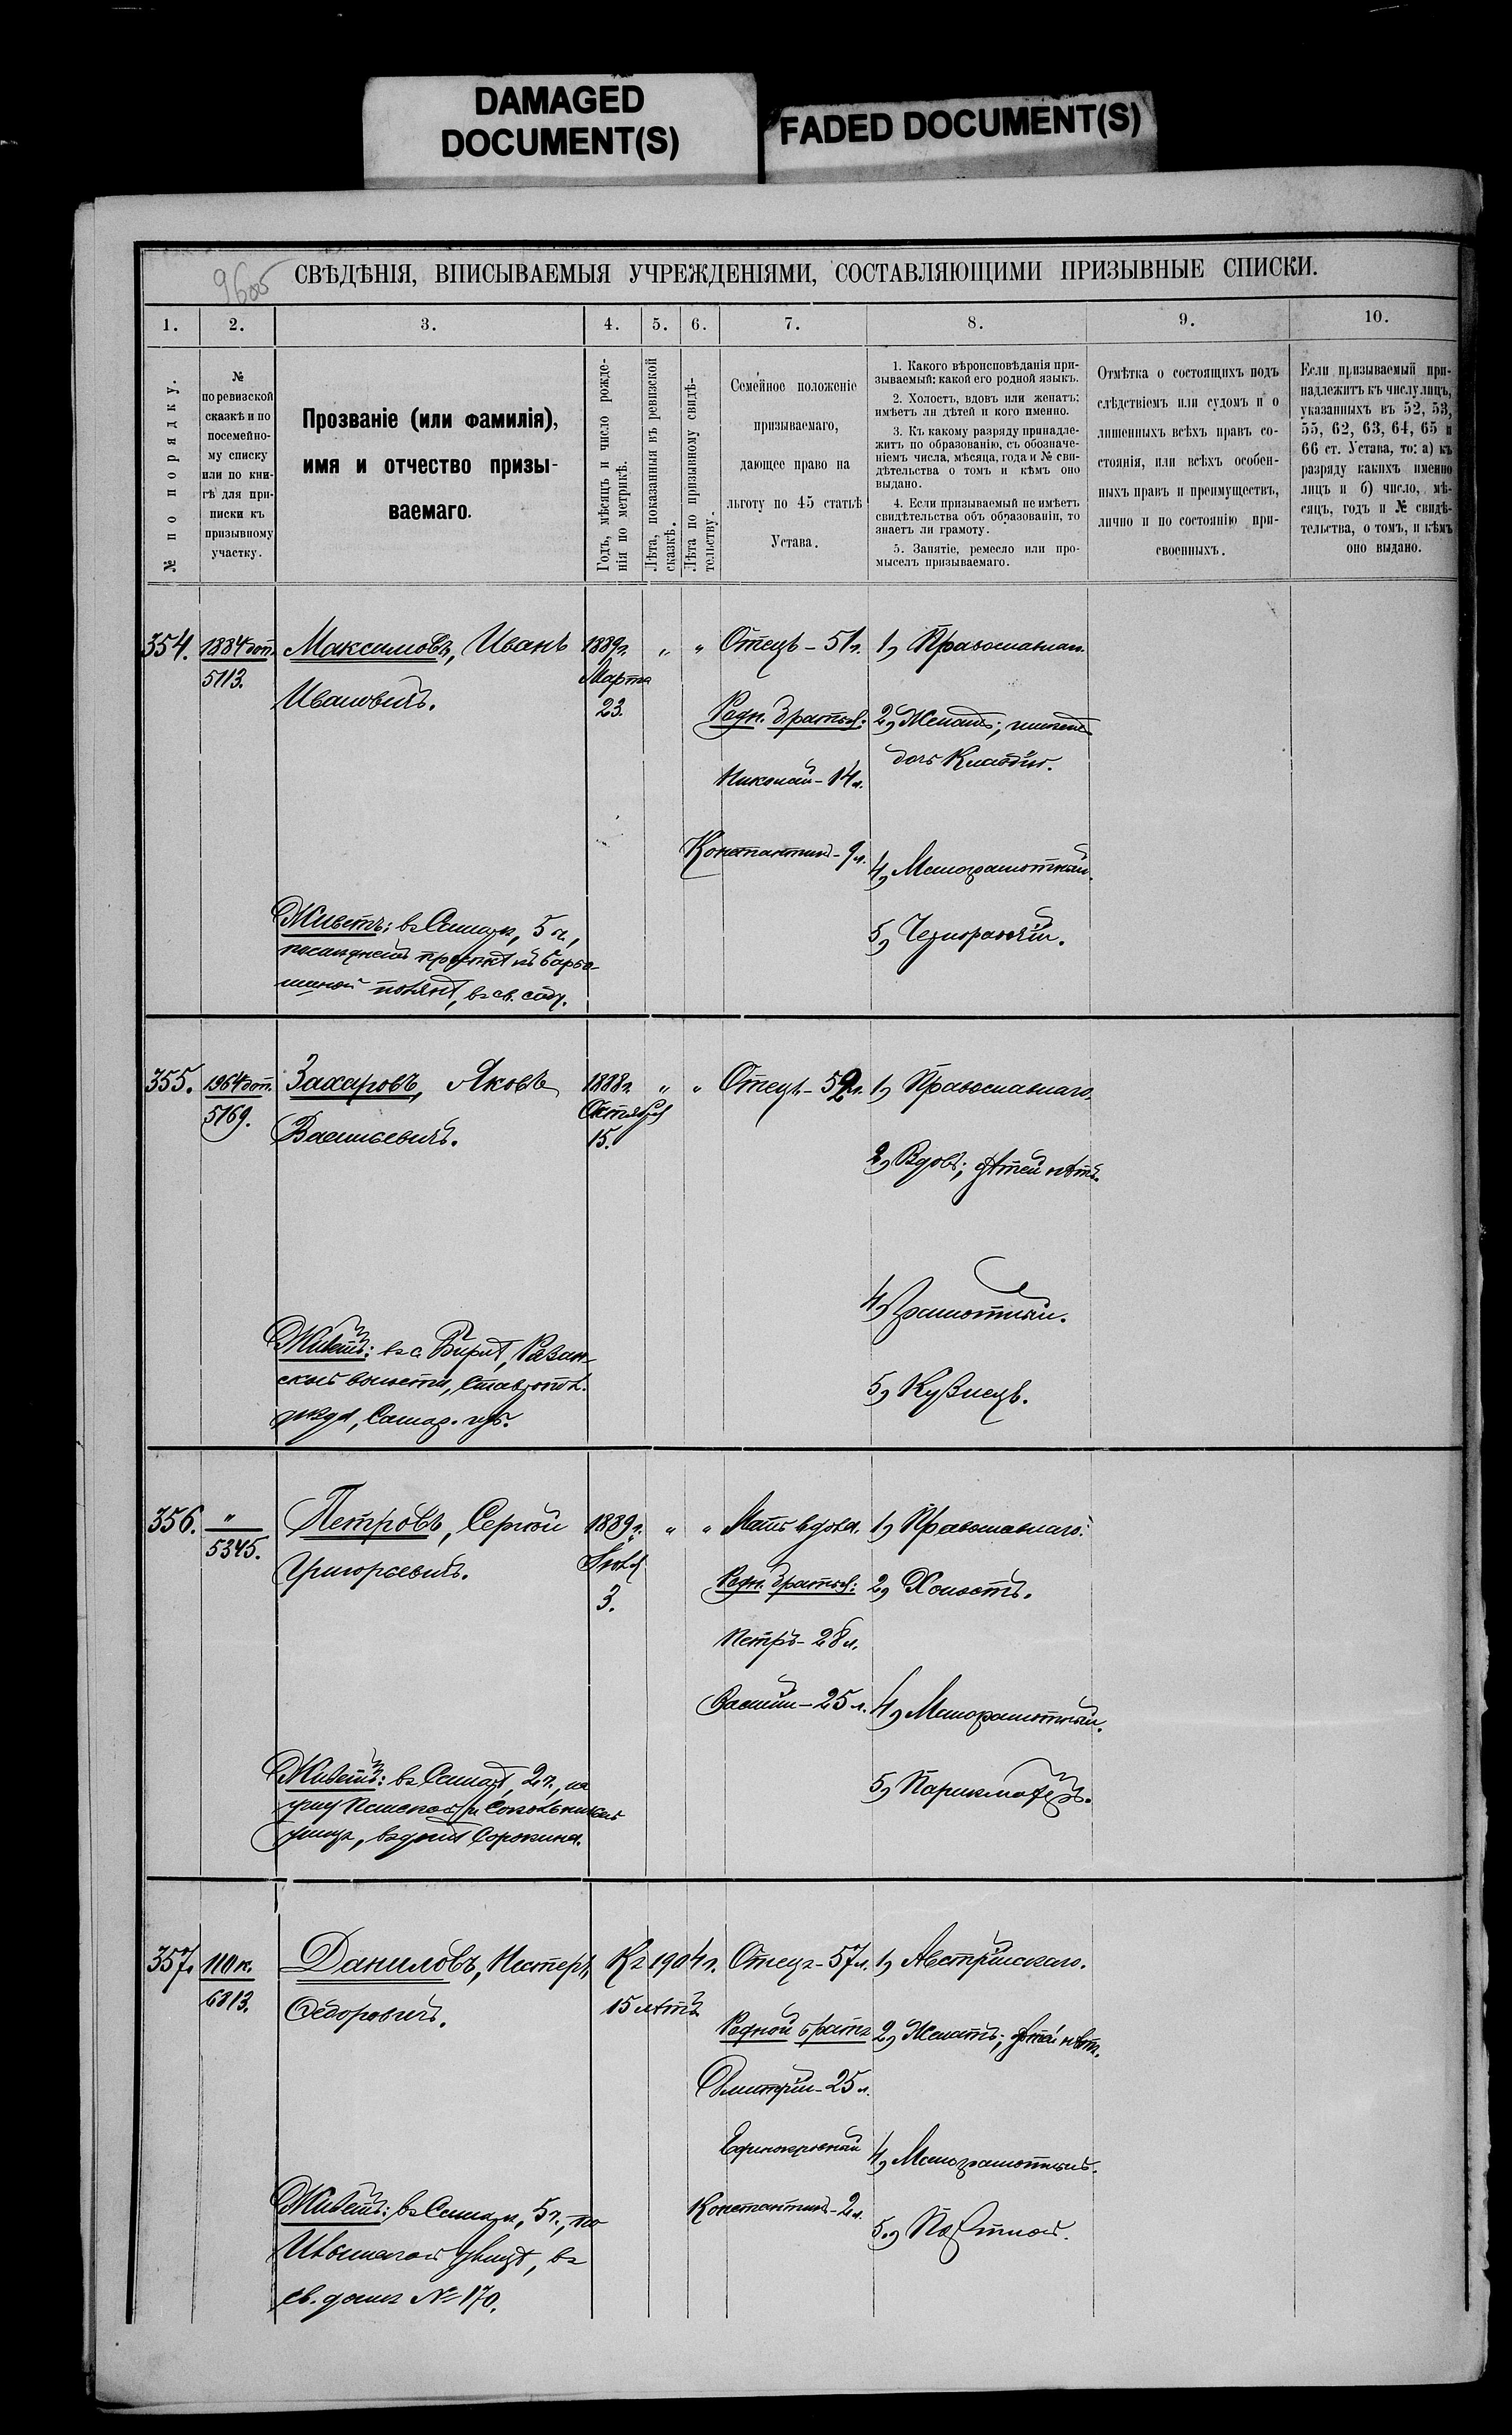 DAMAGED
DOCUMENT(S)
FADED DOCUMENT(S)
9605
СВѢДѢНІЯ, ВПИСЫВАЕМЫЯ УЧРЕЖДЕНІЯМИ, СОСТАВЛЯЮЩИМИ ПРИЗЫВНЫЕ СПИСКИ.
1.
2.
3.
4.
5.
6.
7.
8.
9.
10.
№ по порядку.
№
по ревизской
сказкѣ и по
посемейно-
му списку
или по кни-
гѣ для при-
писки къ
призывному
участку.
Прозваніе (или фамилія),
имя и отчество призы-
ваемаго.
Годъ, мѣсяцъ и число рожде-
нія по метрикѣ.
Лѣта, показанныя въ ревизской
сказкѣ.
Лѣта по призывному свидѣ-
тельству.
Семейное положеніе
призываемаго,
дающее право на
льготу по 45 статьѣ
Устава.
1. Какого вѣроисповѣданія при-
зываемый; какой его родной языкъ.
2. Холостъ, вдовъ или женатъ;
имѣетъ ли дѣтей и кого именно.
3. Къ какому разряду принадле-
житъ по образованію, съ обозначе-
ніемъ числа, мѣсяца, года и № сви-
дѣтельства о томъ и кѣмъ оно
выдано.
4. Если призываемый не имѣетъ
свидѣтельства объ образованіи, то
знаетъ ли грамоту.
5. Занятіе, ремесло или про-
мыселъ призываемаго.
Отмѣтка о состоящихъ подъ
слѣдствіемъ или судомъ и о
лишенныхъ всѣхъ правъ со-
стоянія, или всѣхъ особен-
ныхъ правъ и преимуществъ,
лично и по состоянію при-
своенныхъ.
Если призываемый при-
надлежитъ къ числу лицъ,
указанныхъ въ 52, 53,
55, 62, 63, 64, 65 и
66 ст. Устава, то: а) къ
разряду какихъ именно
лицъ и б) число, мѣ-
сяцъ, годъ и № свидѣ-
тельства, о томъ, и кѣмъ
оно выдано.
354.
1884 доп.
5113.
Максимовъ, Иванъ
Ивановичъ.
1889 г.
Марта
23.
„
„
Отецъ - 51 г.
Родн. братья:
Николай - 14 л.
Константинъ - 9 л.
1, Православнаго.
2, Женатъ; имѣетъ
дочь Клавдію.
4, Малограмотный.
5, Чернорабочій.
Живетъ: въ Самарѣ, 5 ч.,
355.
1964 доп.
5169.
Захаровъ, Яковъ
Васильевичъ.
1888 г.
Октября
15.
„
„
Отецъ - 52 г.
1, Православнаго.
2, Вдовъ; дѣтей нѣтъ.
4, Грамотный.
5, Кузнецъ.
Живетъ: въ с.
волости, Ставропол.
уѣзда, Самар. губ.
356.
„
5345.
Петровъ, Сергѣй
Григорьевичъ.
1889 г.
3.
„
„
Мать вдова.
Родн. братья:
Петръ - 28 л.
Василій - 25 л.
1, Православнаго.
2, Холостъ.
4, Малограмотный.
5, Парикмахеръ.
Живетъ: въ Самарѣ, 2 ч., на
углу
улицъ, въ домѣ Сорокина.
357.
110 к.
6813.
Даниловъ, Нестеръ
Ѳедоровичъ.
Къ 1904 г.
15 лѣтъ
Отецъ - 57 л.
Родной братъ
Дмитрій - 25 л.
Единокровный
Константинъ - 2 л.
1, Австрійскаго.
2, Женатъ; дѣтей нѣтъ.
4, Малограмотный.
5, Портной.
Живетъ: въ Самарѣ, 5 ч., по
улицѣ, въ
св. домѣ № 170.